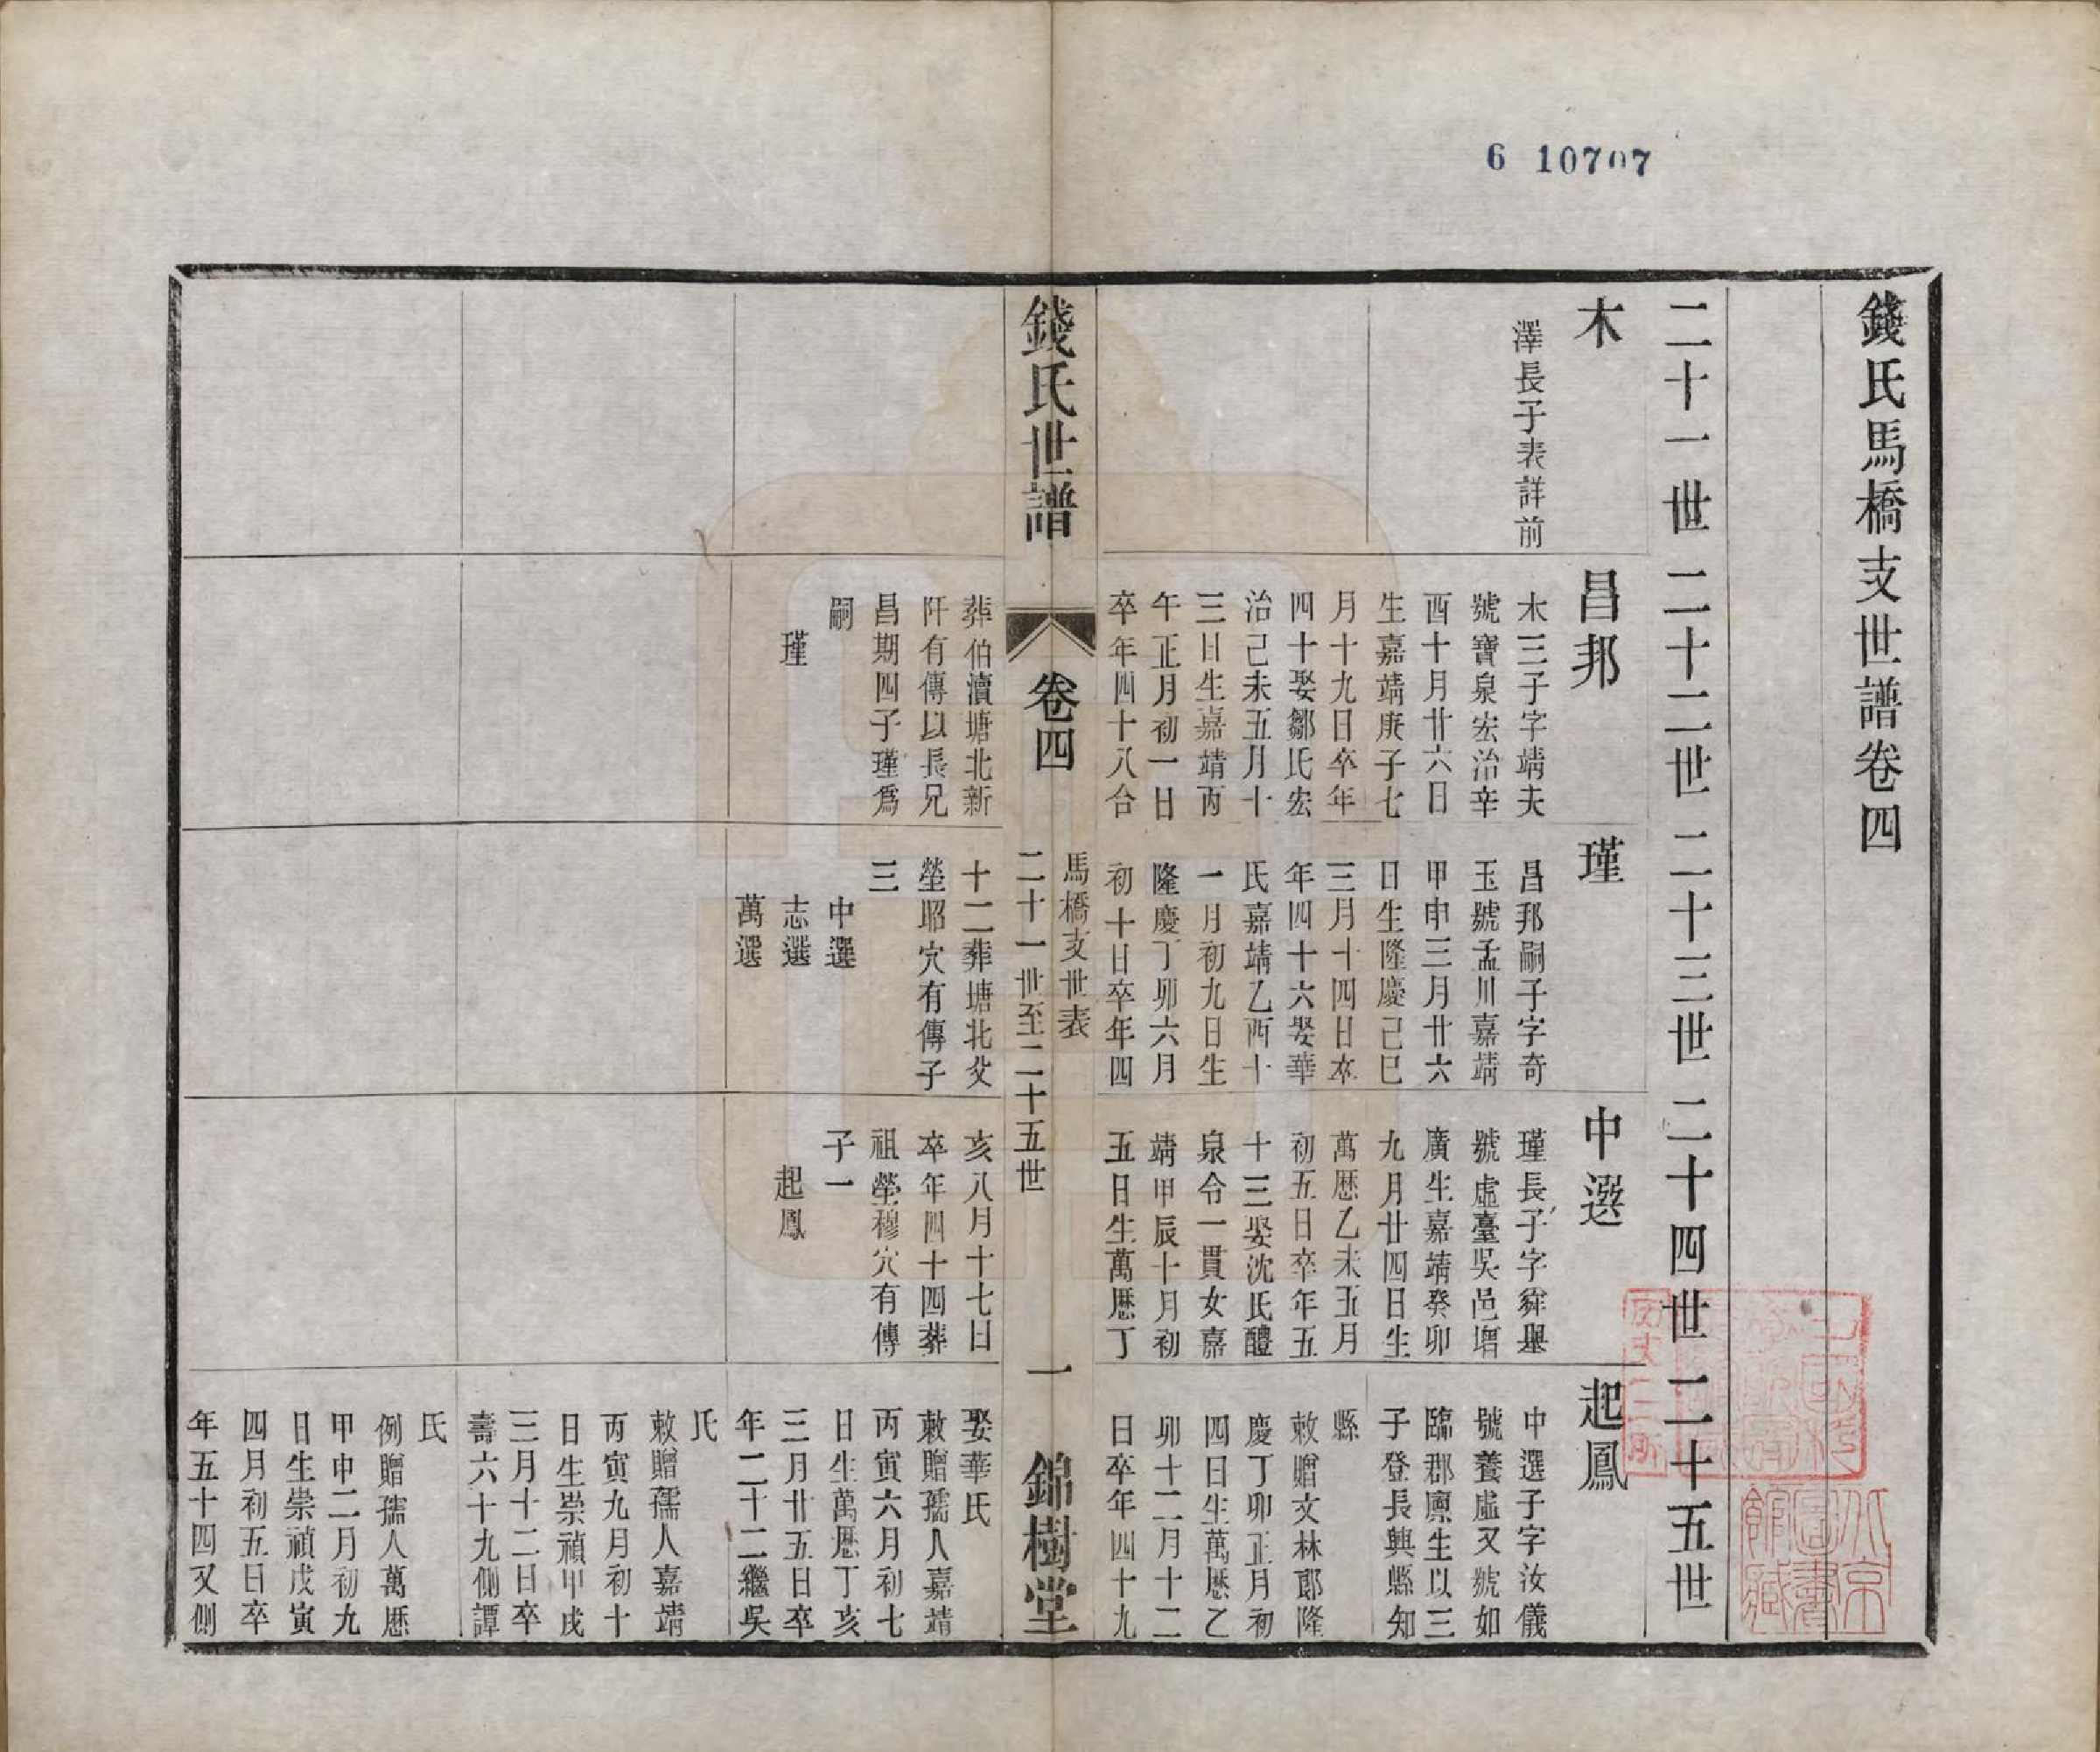 6 10707
錢氏馬橋支世譜卷四
二十一世
二十二世
二十三世
二十四世
二十五世
木
澤長子表詳前
昌邦
木三子字靖夫
號寶泉宏治辛
酉十月廿六日
生嘉靖庚子七
月十九日卒年
四十娶鄒氏宏
治己未五月十
三日生嘉靖丙
午正月初一日
卒年四十八合
葬伯瀆塘北新
阡有傳以長兄
昌期四子瑾爲
嗣
瑾
瑾
昌邦嗣子字奇
玉號孟川嘉靖
甲申三月廿六
日生隆慶己巳
三月十四日卒
年四十六娶華
氏嘉靖乙酉十
一月初九日生
隆慶丁卯六月
初十日卒年四
十二葬塘北父
塋昭穴有傳子
三
中選
志選
萬選
中選
瑾長子字舜舉
號虛臺吳邑增
廣生嘉靖癸卯
九月廿四日生
萬曆乙未五月
初五日卒年五
十三娶沈氏醴
泉令一貫女嘉
靖甲辰十月初
五日生萬曆丁
亥八月十七日
卒年四十四葬
祖塋穆穴有傳
子一
起鳳
起鳳
中選子字汝儀
號養虛又號如
臨郡廩生以三
子登長興縣知
縣
敕贈文林郎隆
慶丁卯正月初
四日生萬曆乙
卯十二月十二
日卒年四十九
娶華氏
敕贈孺人嘉靖
丙寅六月初七
日生萬曆丁亥
三月廿五日卒
年二十二繼吳
氏
敕贈孺人嘉靖
丙寅九月初十
日生崇禎甲戌
三月十二日卒
壽六十九側譚
氏
例贈孺人萬曆
甲申二月初九
日生崇禎戊寅
四月初五日卒
年五十四又側
錢氏世譜
卷四
馬橋支世表
二十一世至二十五世
一
錦樹堂
北京
圖書
館藏